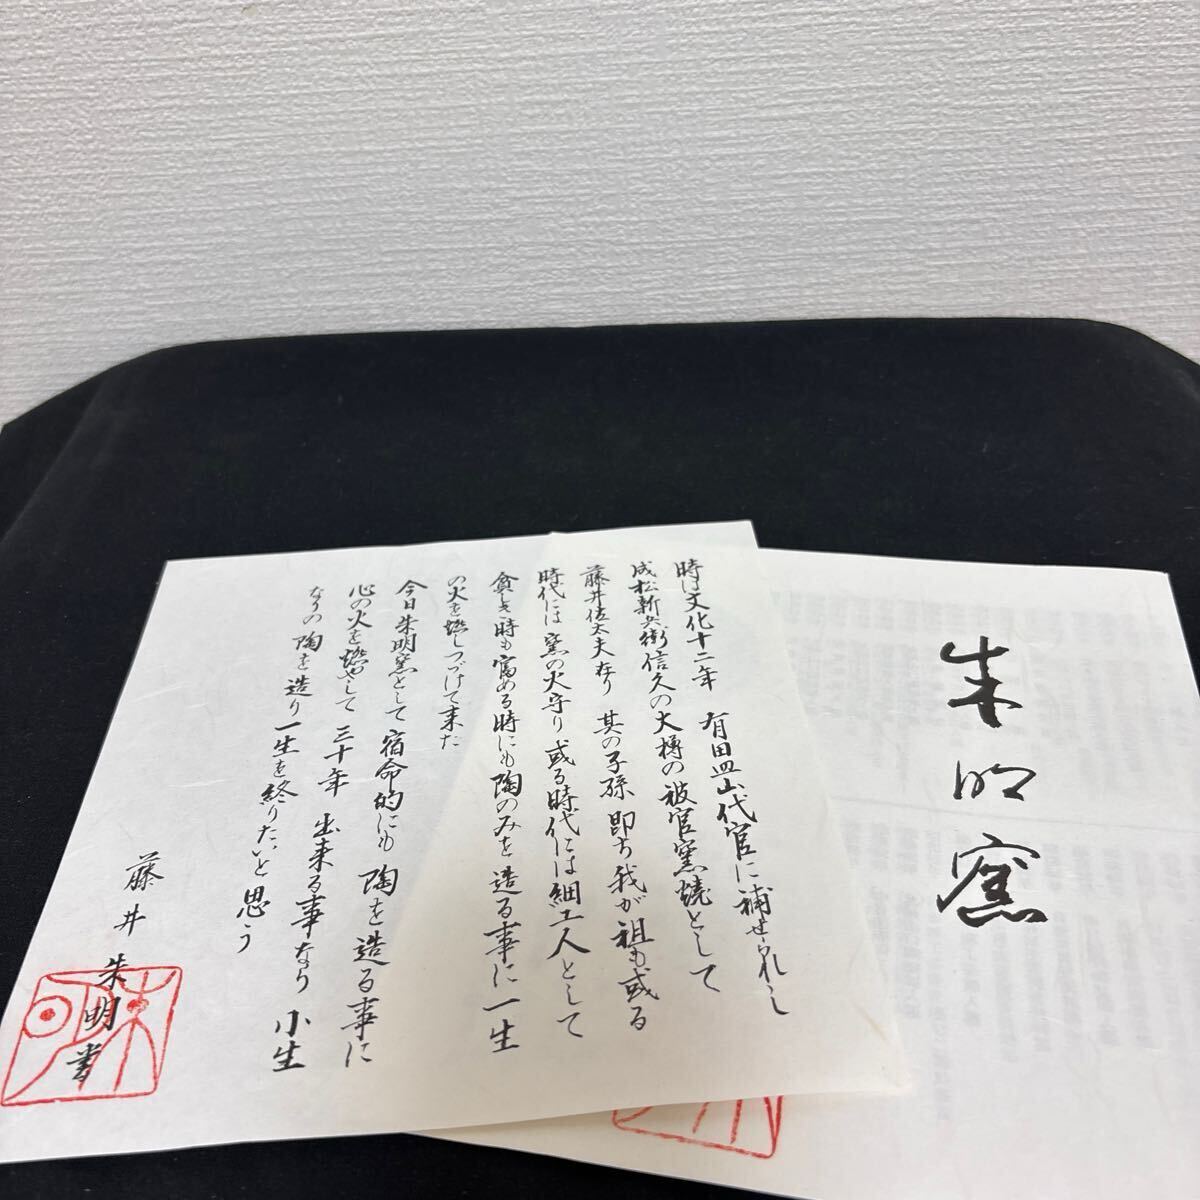 朱明窯
時は文化十二年 有田皿山代官に補せられし
成松新兵衛信久の大樽の被官窯焼として
藤井佐太夫在り 其の子孫 即ち我が祖も或る
時代には窯の火守り或る時代には細工人として
貧しき時も富める時にも陶のみを造る事に一生
の火を燃しつづけて来た
今日朱明窯として宿命的にも陶を造る事に
心の火を燃やして三十年 出来る事なら 小生
なりの陶を造り一生を終りたいと思う
藤井朱明